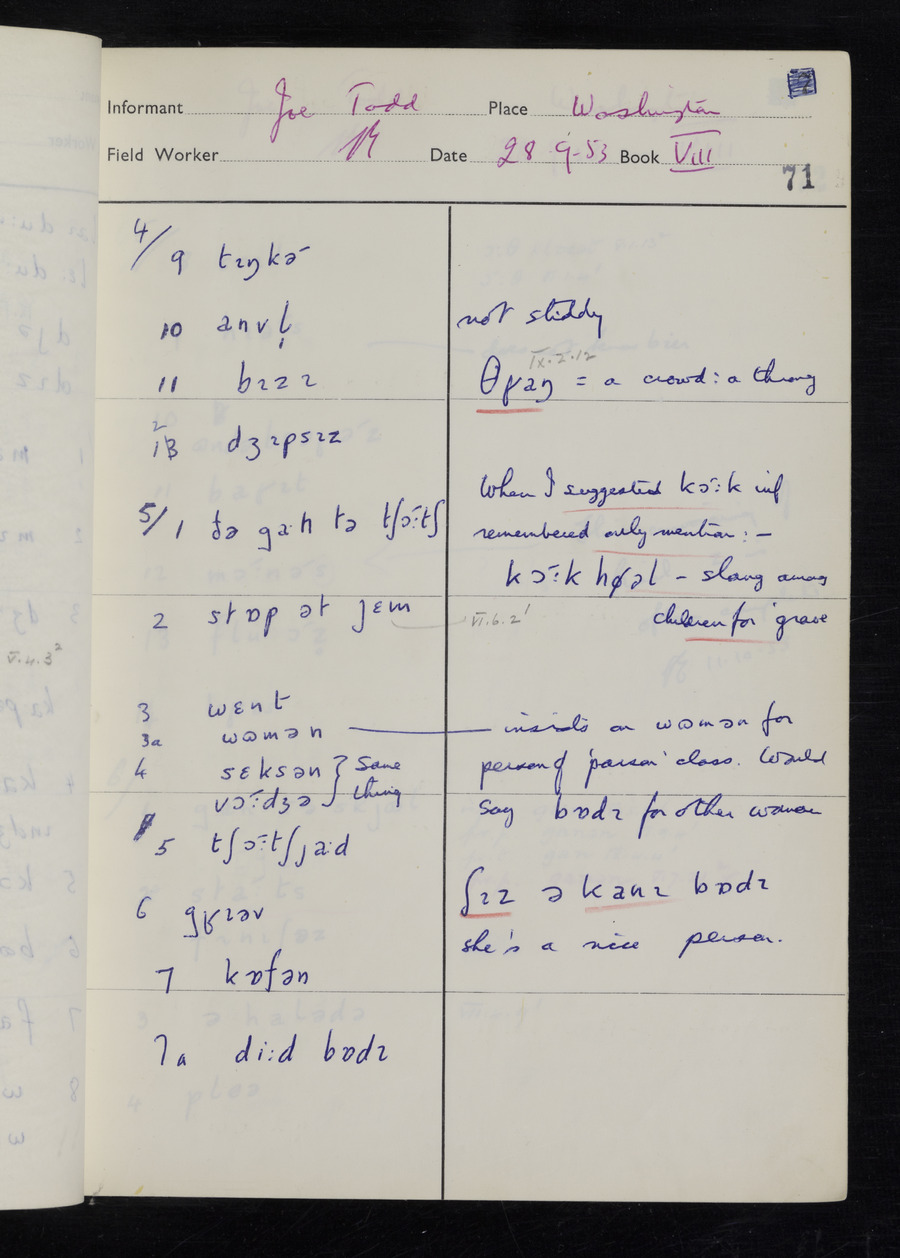 Informant Joe Todd Place Washington
Field Worker Date 28·9-53 Book VIII
71
4/9 tɪŋkə
10 anvl̩
11 bɪzɪ
12 dʒɪpsɪz
5/1 ðə gaːn tə tʃɔ̈ːtʃ
2 stɒp ət jɛm
3 wɛnt
3a wʊmən
4 sɛksən } Same
vɔ̈ːdʒə } thing
5 tʃɔ̈ːtʃjaːd
6 gʁɪəv
7 kɒfən
7a diːd bɒdɪ
not stiddy
IX.2.12
θʁaŋ = a crowd: a throng
When I suggested kɔ̈ːk inf
remembered only mention: –
kɔ̈ːk høəl – slang among
VI.6.2¹ children for 'grave
insists on wʊmən for
person of 'parson' class. Would
say bɒdɪ for other women
ʃɪz ə kanɪ bɒdɪ
she's a nice person.
V.4.3²